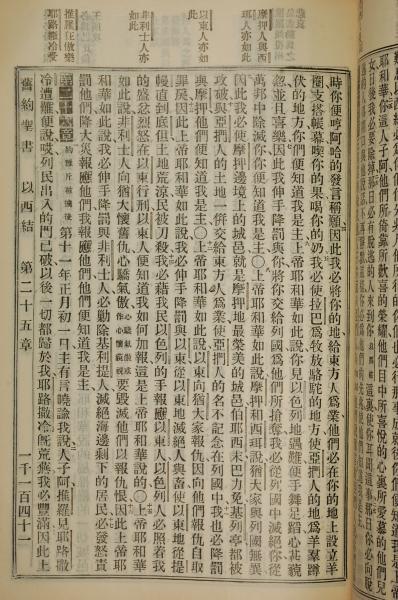 摩押人與西
以東人亦如
此
非利士人亦
如此
推羅狂傲樂
耶路撒冷受
時你便呼阿哈的發言稱願因此我必將你的地給東方人爲業他們必在你的地上設立羊
圈支搭帳幕喫你的果喝你的奶我必使拉巴爲牧放駱駝的地方使亞捫人的地爲羊羣蹲
伏的地方你們便知道我是主〇上帝耶和華如此說你見以色列地遇難便手舞足蹈心甚藐
忽並且喜樂因此我伸手降罰與你將你交給列國爲他們所搶奪我必從列國中滅絕你從
萬邦中除滅你你便知道我是主〇上帝耶和華如此說摩押和西珥說猶大家與列國無異
因此我必使摩押邊境上的城邑就是摩押地最榮美的城邑伯耶西末巴力免基列亭都被
攻破與亞捫人的土地一併交給東方人爲業使亞捫人的名不記念在列國中我也必降罰
與摩押他們便知道我是主〇上帝耶和華如此說以東向猶大家報仇因向他們報仇自取
罪戾因此上帝耶和華如此說我必伸手降罰與以東從以東地滅絕人與畜使以東地從提
幔直到底但土地荒涼民被刀殺我必藉我民以色列的手報應以東人以色列人必照着我
的盛忿烈怒在以東行刑以東人便知道我如何加報這是上帝耶和華說的〇上帝耶和華
如此說非利士人向猶大懷舊仇心驕氣傲心驕氣傲或作心懷藐視要毀滅他們以報仇恨因此上帝耶
和華如此說我必伸手降罰與非利士人必勦除基利提人滅絕海邊剩下的居民必發怒責
罰他們降大災報應他們他們便知道我是主
第二十六章 約雅斤被擄後第十一年正月初一日主有言曉諭我說人子阿推羅見耶路撒
冷遭難便說嗄列民出入的門已破以後一切都歸於我耶路撒冷旣荒蕪我必豐滿因此上
舊約聖書 以西結 第二十五章 一千一百四十一